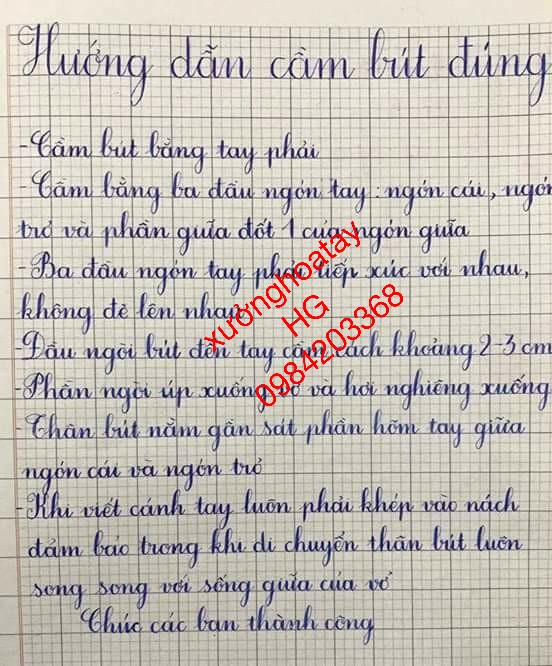 Hướng dẫn cầm bút đúng
- Cầm bút bằng tay phải
- Cầm bằng ba đầu ngón tay: ngón cái, ngón
trỏ và phần giữa đốt 1 của ngón giữa
- Ba đầu ngón tay phải tiếp xúc với nhau,
không đè lên nhau
- Đầu ngòi bút đến tay cầm cách khoảng 2-3 cm
- Phần ngòi úp xuống vở và hơi nghiêng xuống
- Thân bút nằm gần sát phần hõm tay giữa
ngón cái và ngón trỏ
- Khi viết cánh tay luôn phải khép vào nách
đảm bảo trong khi di chuyển thân bút luôn
song song với sống giữa của vở
Chúc các bạn thành công
xưởnghoatay
HG
0984203368